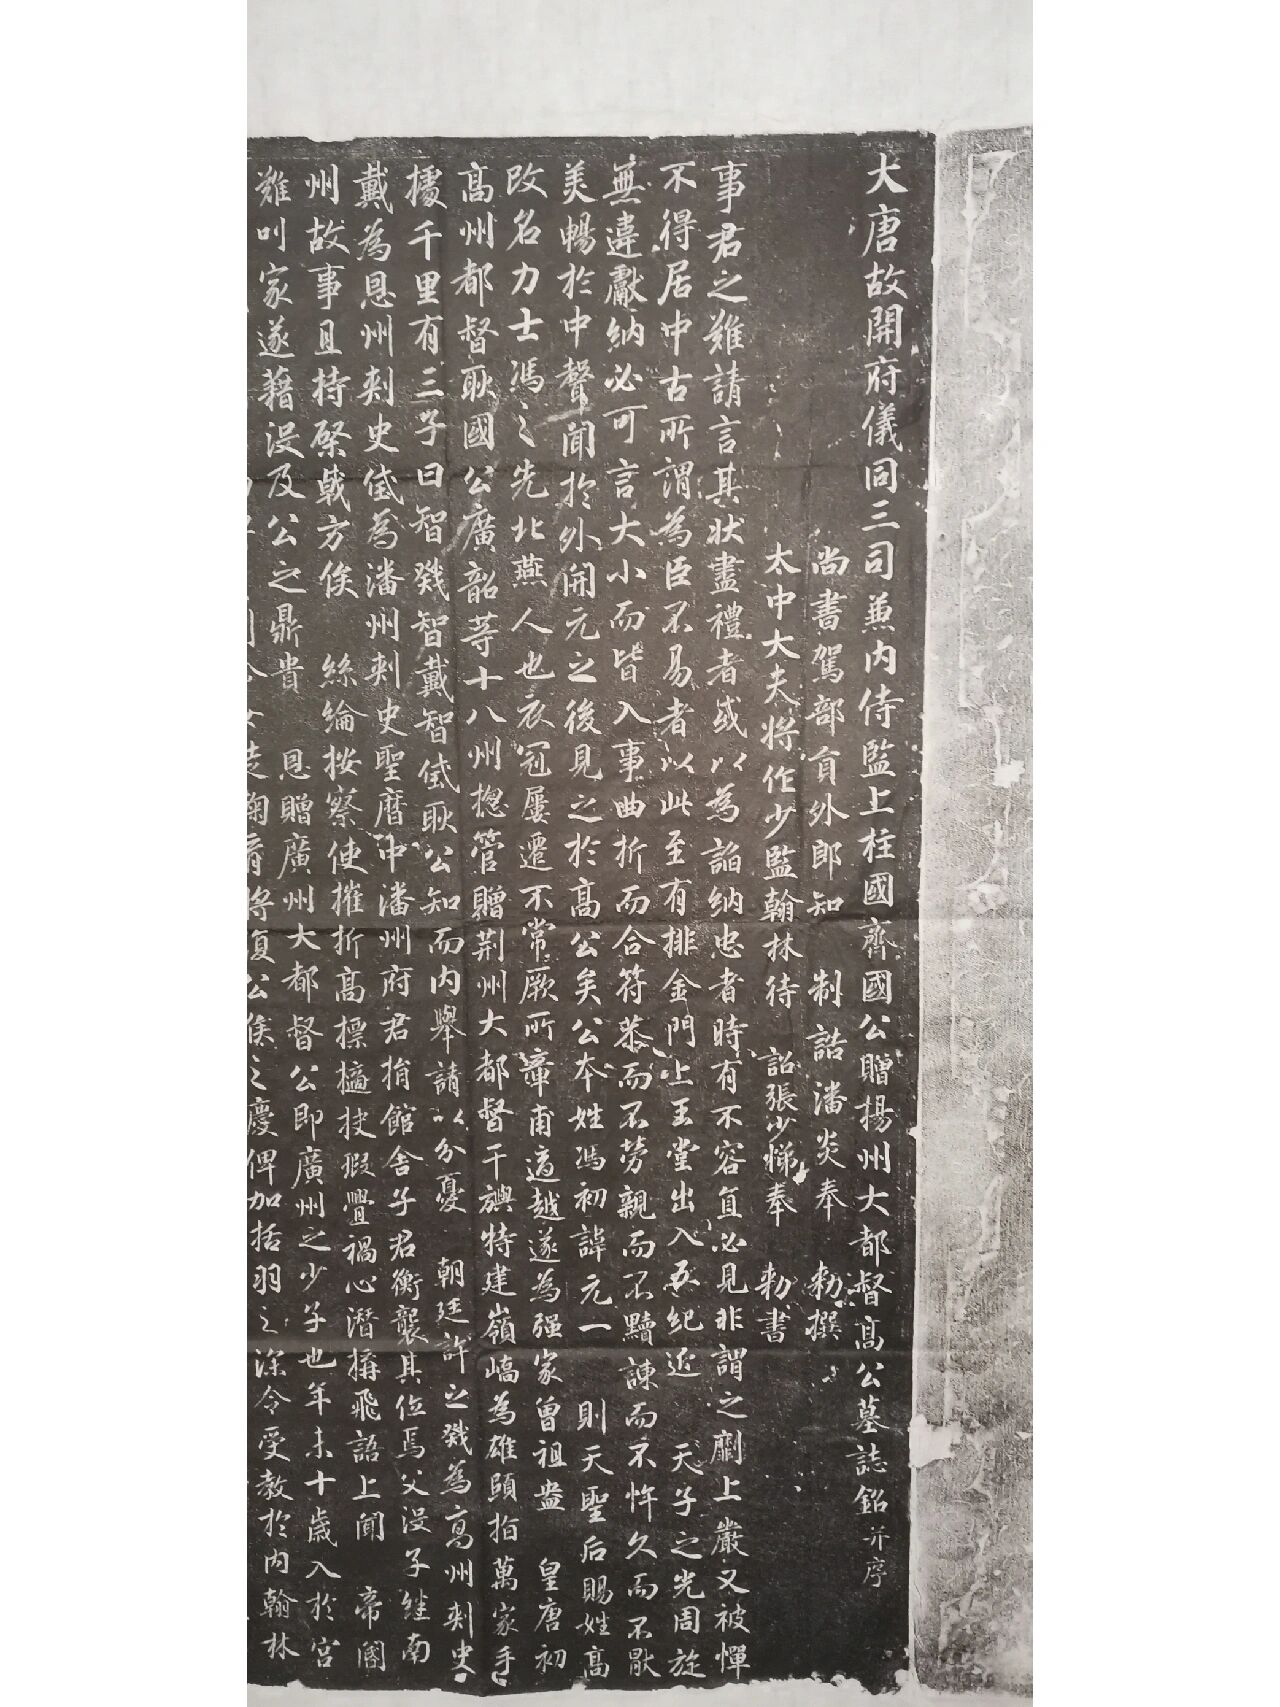 大唐故開府儀同三司兼內侍監上柱國齊國公贈揚州大都督高公墓誌銘并序
尚書駕部員外郎知 制誥潘炎奉 勑撰
太中大夫將作少監翰林待 詔張少悌奉 勑書
事君之難請言其狀盡禮者或以為諂納忠者時有不容直必見非謂之劘上嚴又被憚
不得居中古所謂為臣不易者以此至有排金門上玉堂出入五紀近 天子之光周旋
無違獻納必可言大小而皆入事曲折而合符恭而不勞親而不黷諫而不忤久而不猒
美暢於中聲聞於外開元之後見之於高公矣公本姓馮初諱元一 則天聖后賜姓高
改名力士馮之先北燕人也衣冠屢遷不常厥所章甫適越遂為强家曾祖盎 皇唐初
高州都督耿國公廣韶等十八州揔管贈荆州大都督干旟特建嶺嶠為雄頤指萬家手
據千里有三子曰智戣智戴智㦛耿公知而內舉請以分憂 朝廷許之戣為高州刺史
戴為恩州刺史㦛為潘州刺史聖曆中潘州府君捐館舍子君衡襲其位焉父沒子継南
州故事且持棨戟方俟 絲綸按察使摧折高標擿抉瑕舋禍心潛搆飛語上聞 帝閽
難叫家遂藉沒及公之鼎貴 恩贈廣州大都督公即廣州之少子也年未十歲入於宮
將復公侯之慶俾加括羽之深令受教於內翰林